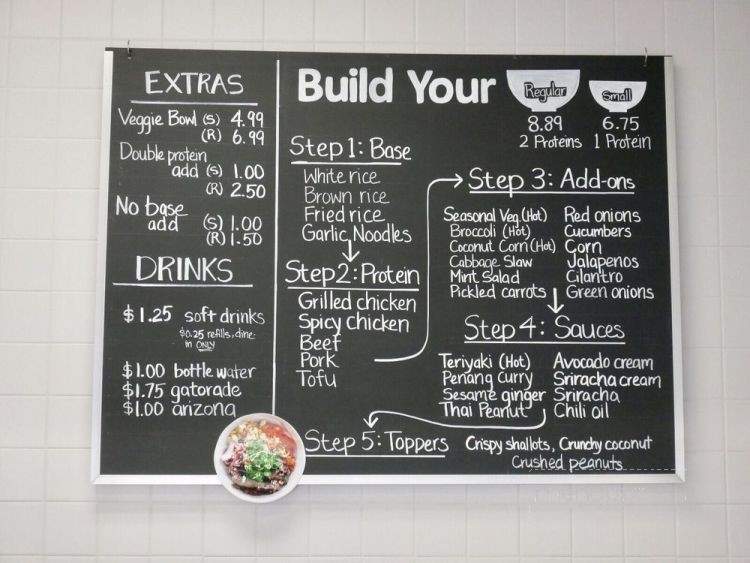 EXTRAS
Veggie Bowl (S) 4.99
(R) 6.99
Double protein
add (S) 1.00
(R) 2.50
No base
add (S) 1.00
(R) 1.50
DRINKS
$1.25 soft drinks
$0.25 refills, dine-
in ONLY
$1.00 bottle water
$1.75 gatorade
$1.00 arizona
Build Your
Regular
8.89
2 Proteins
Small
6.75
1 Protein
Step 1: Base
White rice
Brown rice
Fried rice
Garlic Noodles
Step 2: Protein
Grilled chicken
Spicy chicken
Beef
Pork
Tofu
Step 3: Add-ons
Seasonal Veg (Hot)
Broccoli (Hot)
Coconut Corn (Hot)
Cabbage Slaw
Mint Salad
Pickled carrots
Red onions
Cucumbers
Corn
Jalapenos
Cilantro
Green onions
Step 4: Sauces
Teriyaki (Hot)
Penang Curry
Sesame ginger
Thai Peanut
Avocado cream
Sriracha cream
Sriracha
Chili oil
Step 5: Toppers
Crispy shallots, Crunchy coconut
Crushed peanuts